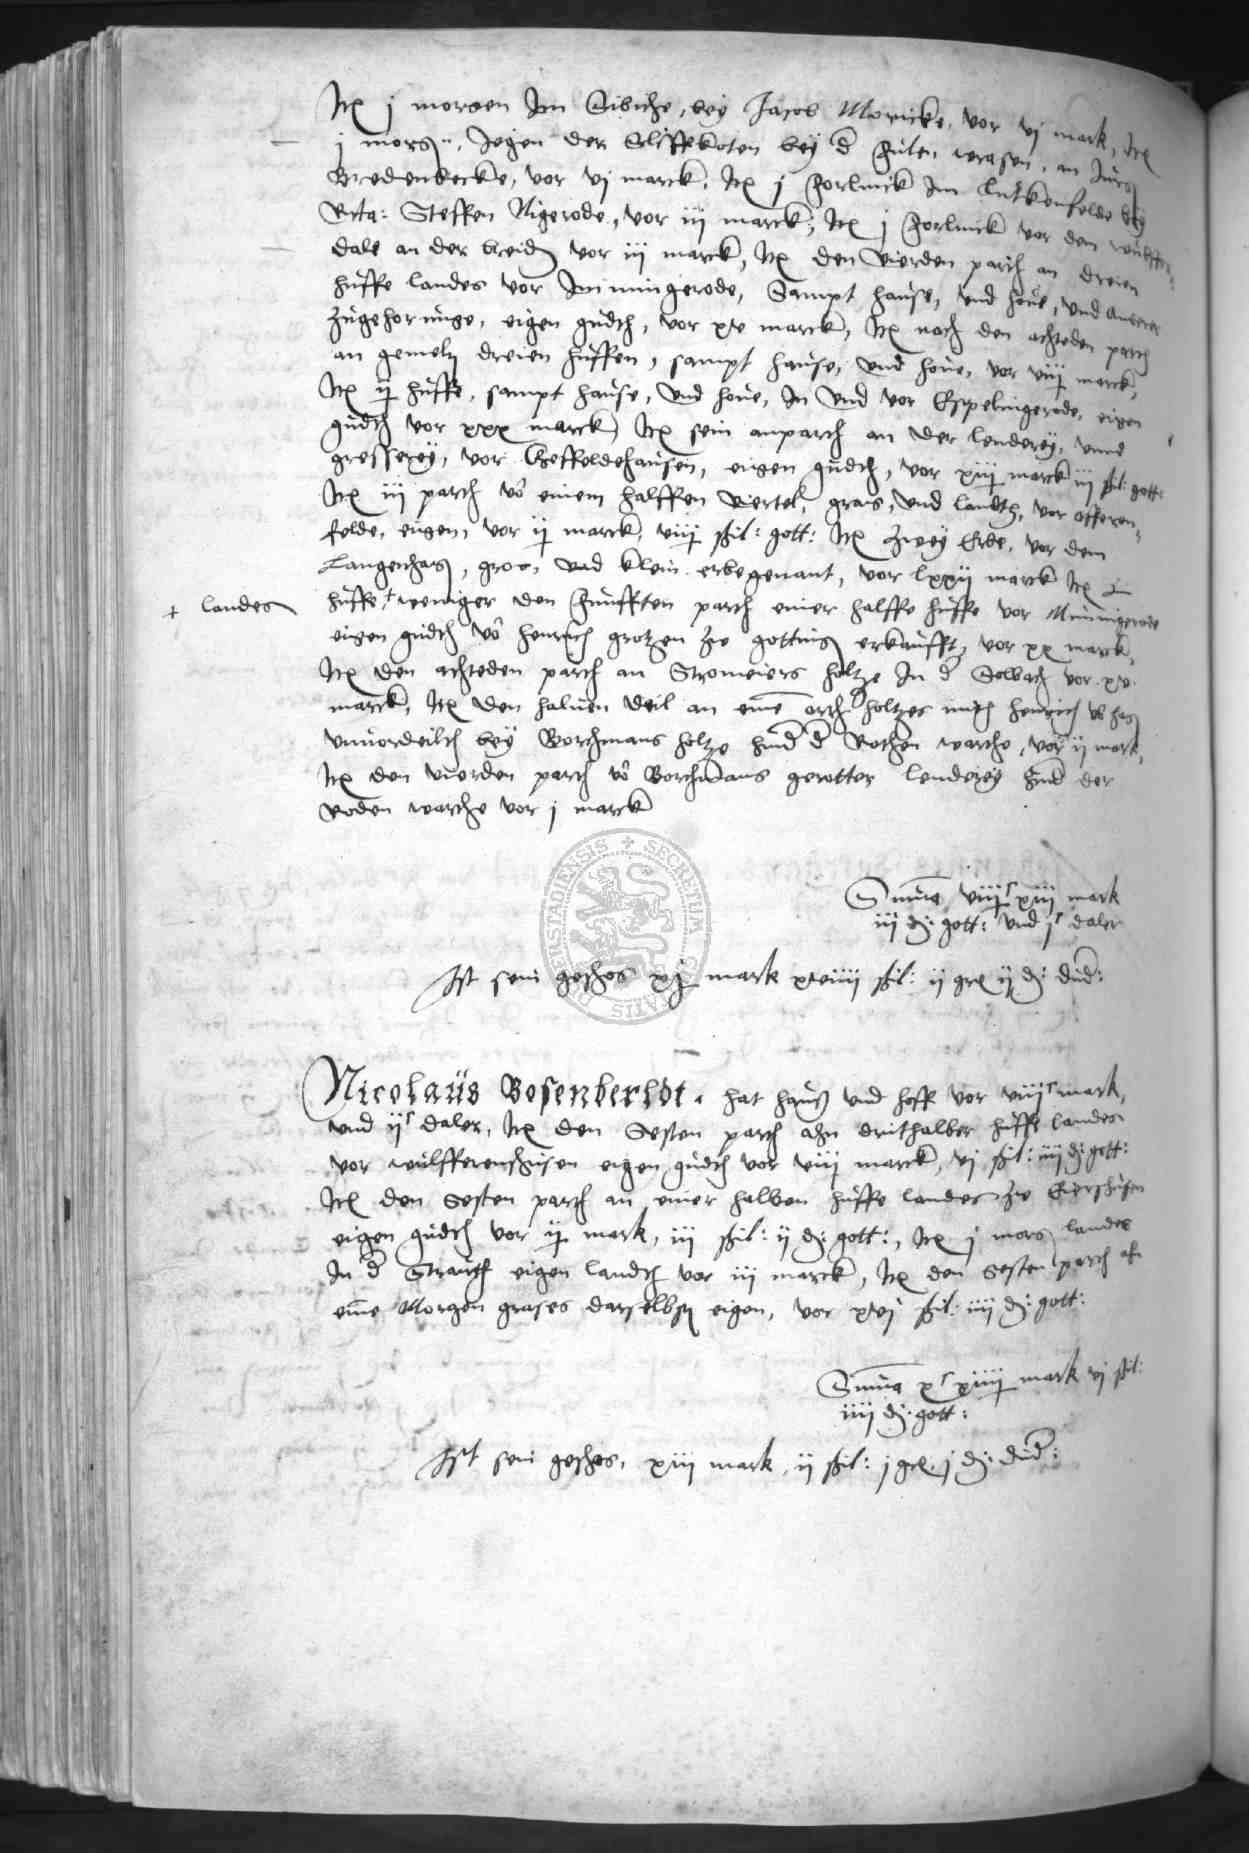 Itē j morgen Im Sibiche, bey Jacob Moricke, vor vj mark, Itē
j morgē, Jegen der Sliffkoten bey d̄ wrasen, an
Bredenbecke, vor vj marck, Itē j forlinck Im lutkenfelde bey
Steffen Nigerode, vor iij marck, Itē j forlinck vor dem
dale an der breid vor iij marck, Itē den vierden parth an dreien
huffe landes vor Iminnigerode, Sampt hause, vnd houe, vnd anderer
zugehoringe, eigen gudth, vor xv marck, Itē noch den achteden parth
an gemelten dreien huffen, sampt hause, vnd houe, vor viij marck,
Itē ij huffe, sampt hause, vnd houe, In vnd vor Espelingerode, eigen
gudth vor xxx marck, Itē sein anparth an der lenderey, vnnd
gresserey, vor Geffeldehausen, eigen gudth, vor xiij marck iij ßil: gott:
Itē iij parth vō einem halffen viertel, graß, vnd landtz, vor Offeren-
felde, eigen, vor ij marck, viij ßil: gott: Itē zwey Erbe, vor dem
Langenhag, gros, vnd klein erbegenant, vor lxxij marck Itē
+ landes
huffe + weniger den funfften parth einer halffe huffe vor Minnigerode
eigen gudth vō Henrich grotzen zu gotting erkaufft, vor xx marck,
Itē den achteden parth an Stromeiers holtze In d̄ Solbach vor xv
marck, Itē den haluen deil an eine orth holtzes mith Henrich
vnuordeilth bey Borchmans holtze hind d̄ Rothen warthe, vor ij mark,
Itē den vierden parth vō Borchmans gerotter lenderey hind der
Roden warthe vor j marck
Suma viijᶜ xiij mark
iij d: gott: vnd jᶜ daler
Ist sein geschos xj mark xviiij ßil: ij grē ij d: dud:
Nicolaus Bosenberdt. hat hauß vnd hoff vor viijᶜ mark,
vnd ijᶜ daler, Itē den Sesten parth ahn drithalber huffe landes
vor wulfferenshusen eigen gudth vor viij marck, vj ßil: iiij d: gott:
Itē den Sesten parth an einer halben huffe landes zu
eigen gudth vor ij mark, iij ßil: ij d: gott:, Itē j morg landes
In d̄ Strauth eigen landth vor iij marck, Itē den sesten parth ah
eine Morgen grases darselbst eigen, vor xvj ßil: iiij d: gott:
Suma xᶜ xiiij mark vj ßil:
iiij d: gott:
Ist sein geschos, xiij mark, ij ßil: j grē. j d: dud:
SECRETUM DUDERSTADIENSIS